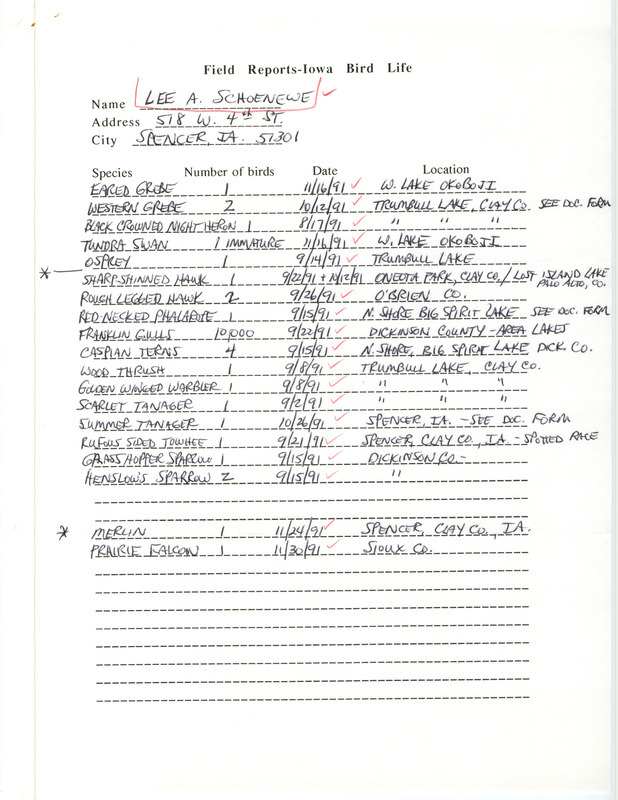 Field Reports-Iowa Bird Life
Name LEE A. SCHOENEWE ✓
Address 518 W. 4th ST.
City SPENCER, IA. 51301
Species Number of birds Date Location
EARED GREBE 1 11/16/91 ✓ W. LAKE OKOBOJI
WESTERN GREBE 2 10/12/91 ✓ TRUMBULL LAKE, CLAY CO. SEE DOC. FORM
BLACK CROWNED NIGHT HERON 1 8/17/91 ✓ " " "
TUNDRA SWAN 1 IMMATURE 11/16/91 ✓ W. LAKE OKOBOJI
OSPREY 1 9/14/91 ✓ TRUMBULL LAKE
* SHARP-SHINNED HAWK 1 9/22/91 + 10/12/91 ONEOTA PARK, CLAY CO./ LOST ISLAND LAKE PALO ALTO, CO.
ROUGH LEGGED HAWK 2 9/26/91 ✓ O'BRIEN CO.
RED-NECKED PHALAROPE 1 9/15/91 ✓ N. SHORE BIG SPIRIT LAKE SEE DOC. FORM
FRANKLIN GULLS 10,000 9/22/91 ✓ DICKINSON COUNTY-AREA LAKES
CASPIAN TERNS 4 9/15/91 ✓ N. SHORE, BIG SPIRIT LAKE DICK. CO.
WOOD THRUSH 1 9/8/91 ✓ TRUMBULL LAKE, CLAY CO.
GOLDEN WINGED WARBLER 1 9/8/91 ✓ " " "
SCARLET TANAGER 1 9/2/91 ✓ " " "
SUMMER TANAGER 1 10/26/91 ✓ SPENCER, IA. -SEE DOC. FORM
RUFOUS SIDED TOWHEE 1 9/21/91 ✓ SPENCER, CLAY CO., IA. - SPOTTED RACE
GRASSHOPPER SPARROW 1 9/15/91 ✓ DICKINSON CO.-
HENSLOW'S SPARROW 2 9/15/91 ✓ "
* MERLIN 1 11/24/91 ✓ SPENCER, CLAY CO., IA.
PRAIRIE FALCON 1 11/30/91 ✓ SIOUX CO.